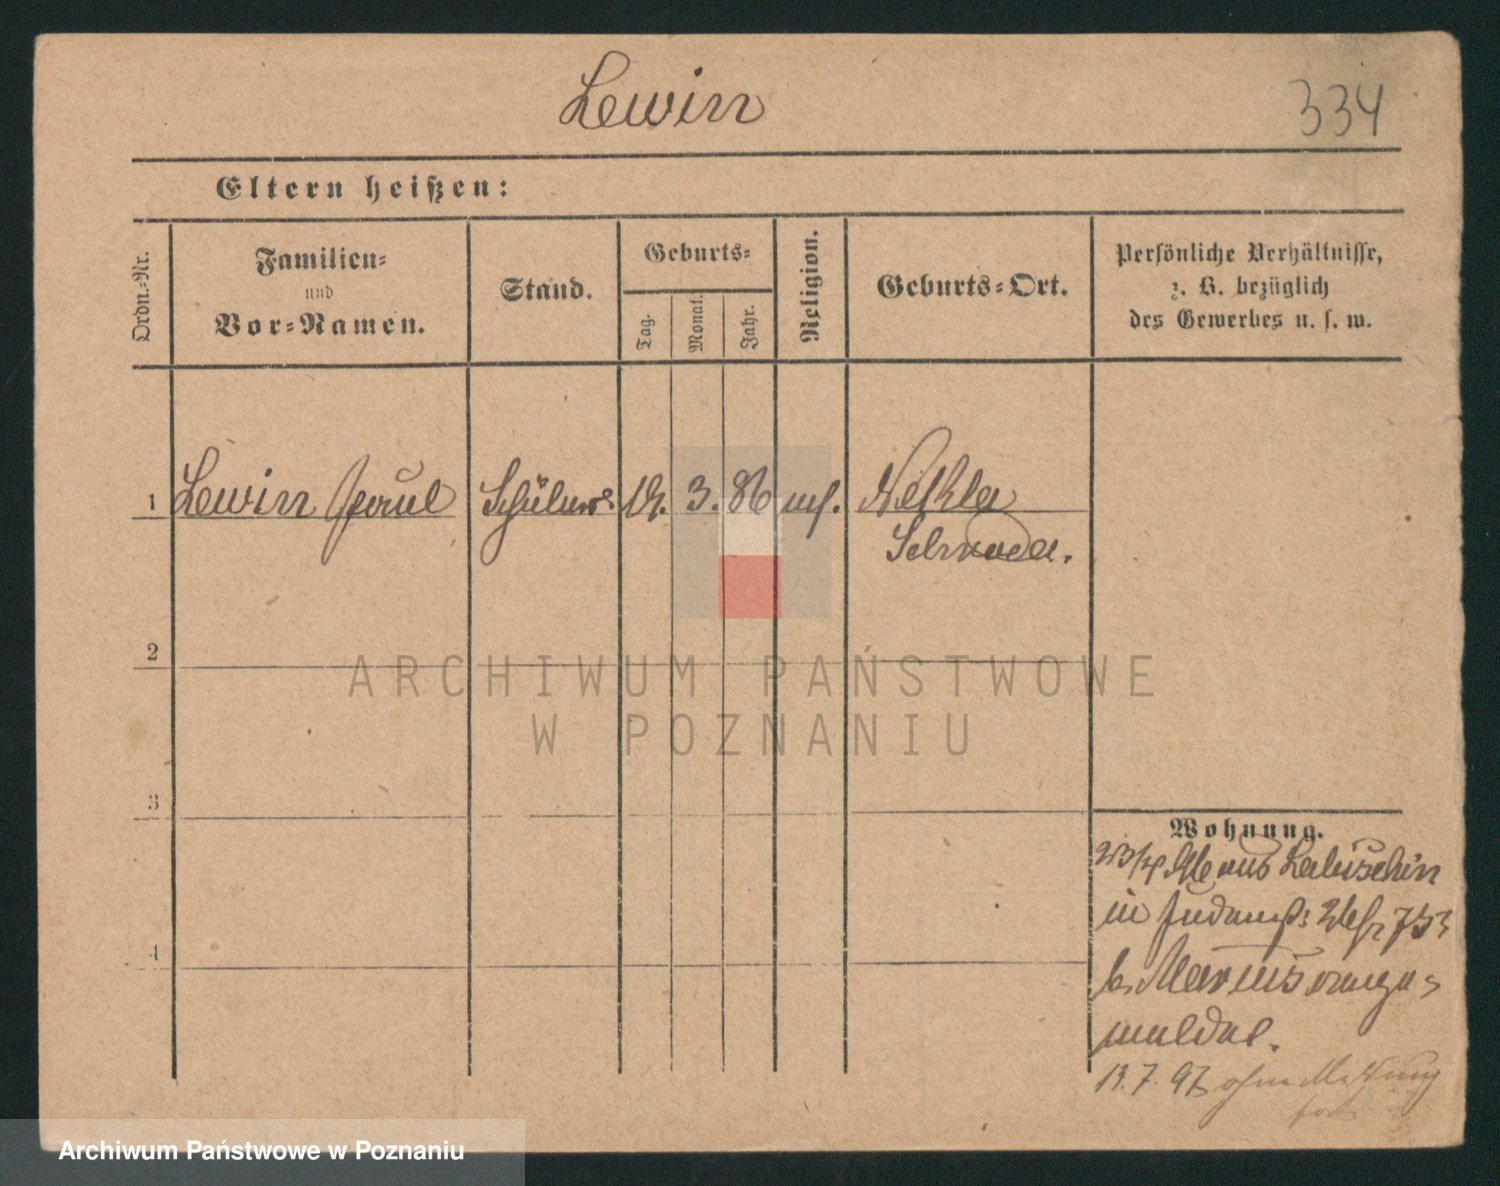 Lewin
334
Eltern heißen:
Ordn.-Nr.
Familien-
und
Vor-Namen.
Stand.
Geburts-
Tag.
Monat.
Jahr.
Religion.
Geburts-Ort.
Persönliche Verhältnisse,
z. B. bezüglich
des Gewerbes u. s. w.
1
Lewin Paul
Schüler
19. 3. 86
mos.
Nekla
Schroda.
2
3
4
Wohnung.
aus Labischin
in
b. Marcus ange-
meldet.
13.7.97 ohne Meldung
fort
ARCHIWUM PAŃSTWOWE
W POZNANIU
Archiwum Państwowe w Poznaniu